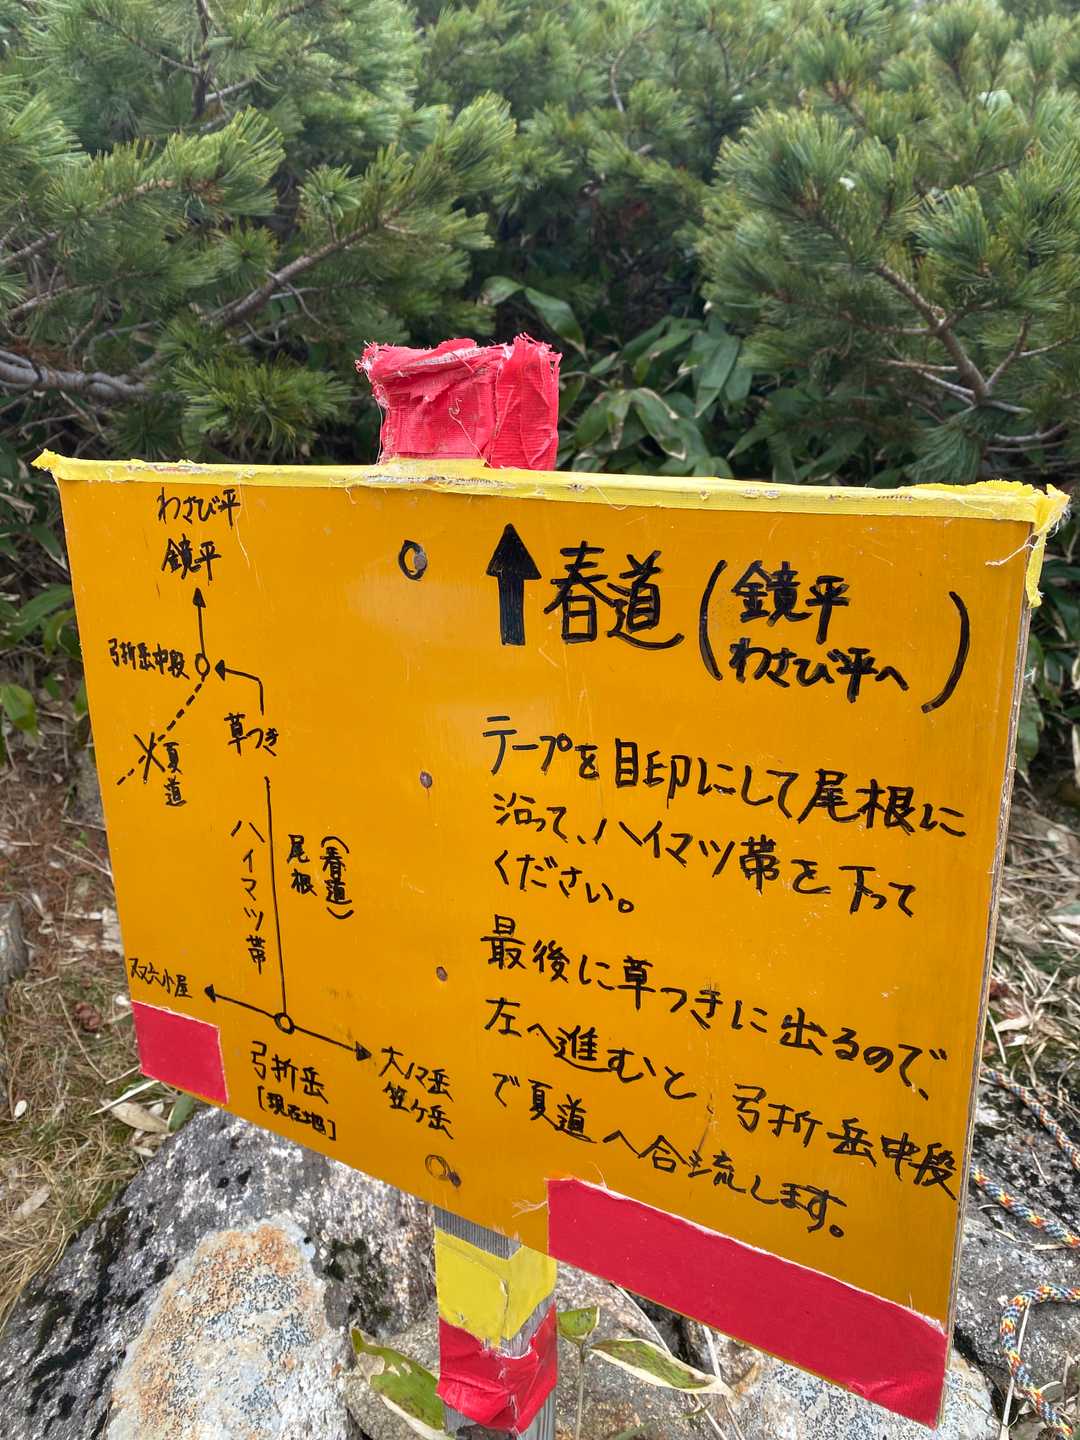 わさび平
鏡平
弓折岳中段
草つき
夏道
ハイマツ帯
尾根
(春道)
双六小屋
弓折岳
[現在地]
大ノマ岳
笠ケ岳
春道(鏡平
わさび平へ)
テープを目印にして尾根に
沿って、ハイマツ帯を下って
ください。
最後に草つきに出るので、
左へ進むと、弓折岳中段
で夏道へ合流します。